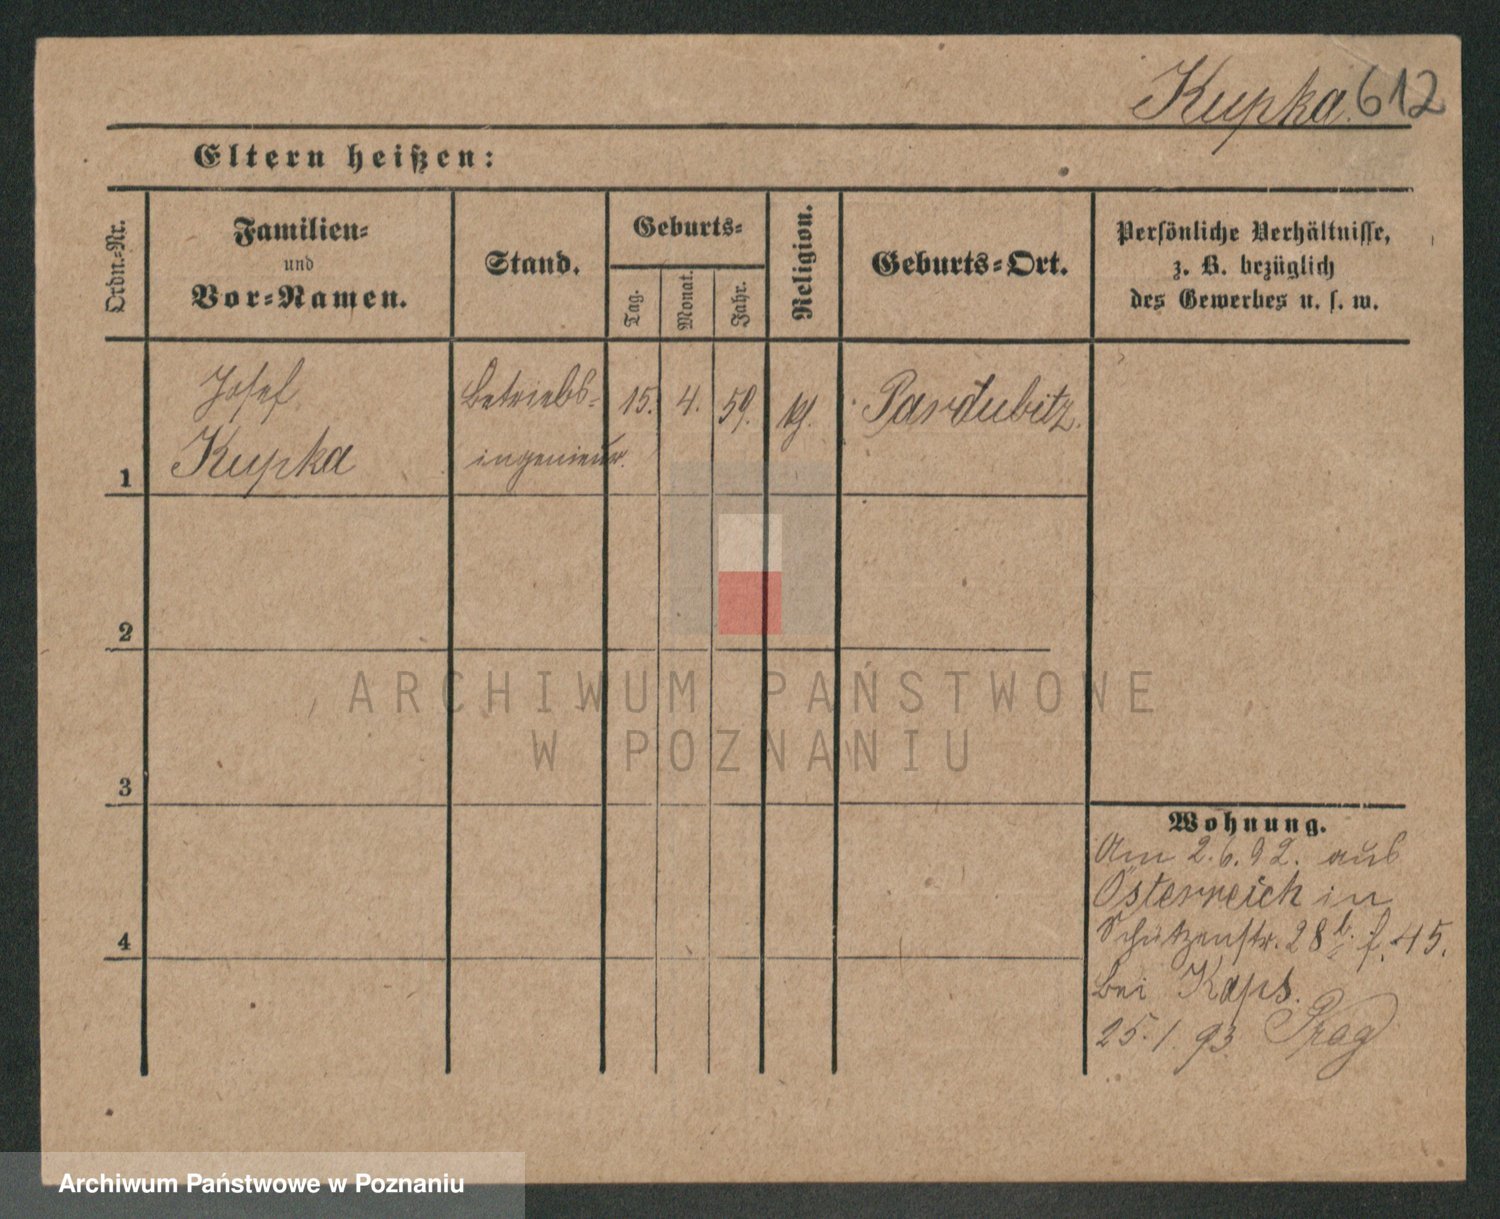 Kupka. 612
Eltern heißen:
Ordn.-Nr.
Familien-
und
Vor-Namen.
Stand.
Geburts-
Tag.
Monat.
Jahr.
Religion.
Geburts-Ort.
Persönliche Verhältnisse,
z. B. bezüglich
des Gewerbes u. s. w.
Josef
Kupka
Betriebs-
ingenieur.
15. 4. 59.
Pardubitz.
1
2
3
4
Wohnung.
Am 2.6.92. aus
Österreich in
Schützenstr. 28 45.
bei Kaps.
25.1.93. Prag
ARCHIWUM PAŃSTWOWE
W POZNANIU
Archiwum Państwowe w Poznaniu